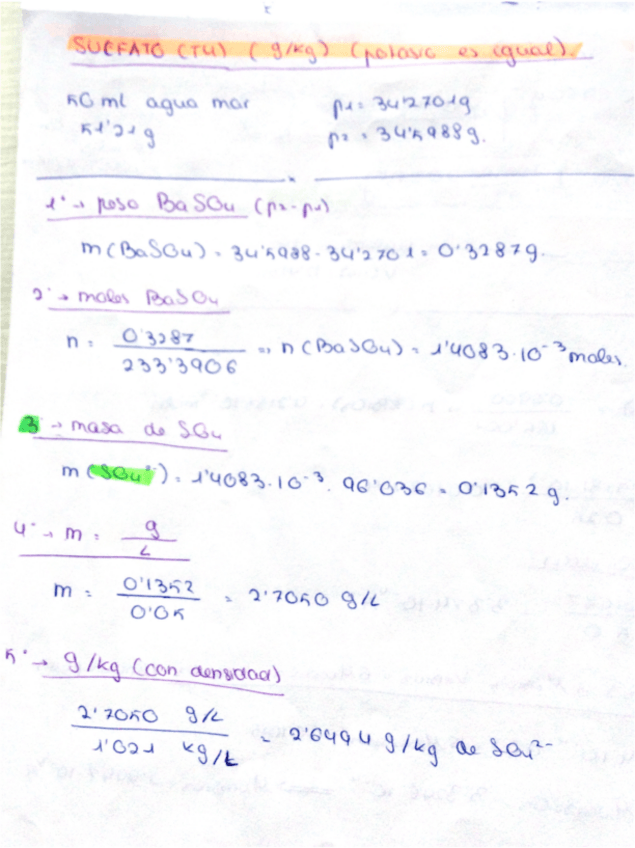 SULFATO (T4) (g/kg) (potasio es igual).
50 ml agua mar p1 = 34'2701g
51'21g p2 = 34'5988g.
1º → peso BaSO4 (p2-p1)
m(BaSO4) = 34'5988 - 34'2701 = 0'3287g.
2º → moles BaSO4
n = 0'3287 / 233'3906 => n(BaSO4) = 1'4083·10⁻³ moles.
3 → masa de SO4
m(SO4²⁻) = 1'4083·10⁻³ · 96'036 = 0'1352g.
4º → m = g / L
m = 0'1352 / 0'05 = 2'7050 g/L
5º → g/kg (con densidad)
2'7050 g/L / 1'021 kg/L = 2'6494 g/kg de SO4²⁻